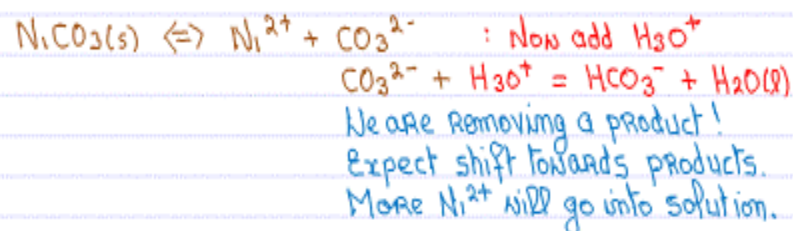 NiCO3(s) <=> Ni²⁺ + CO3²⁻ : Now add H3O⁺
CO3²⁻ + H3O⁺ = HCO3⁻ + H2O(l)
We are removing a product!
Expect shift towards products.
More Ni²⁺ will go into solution.